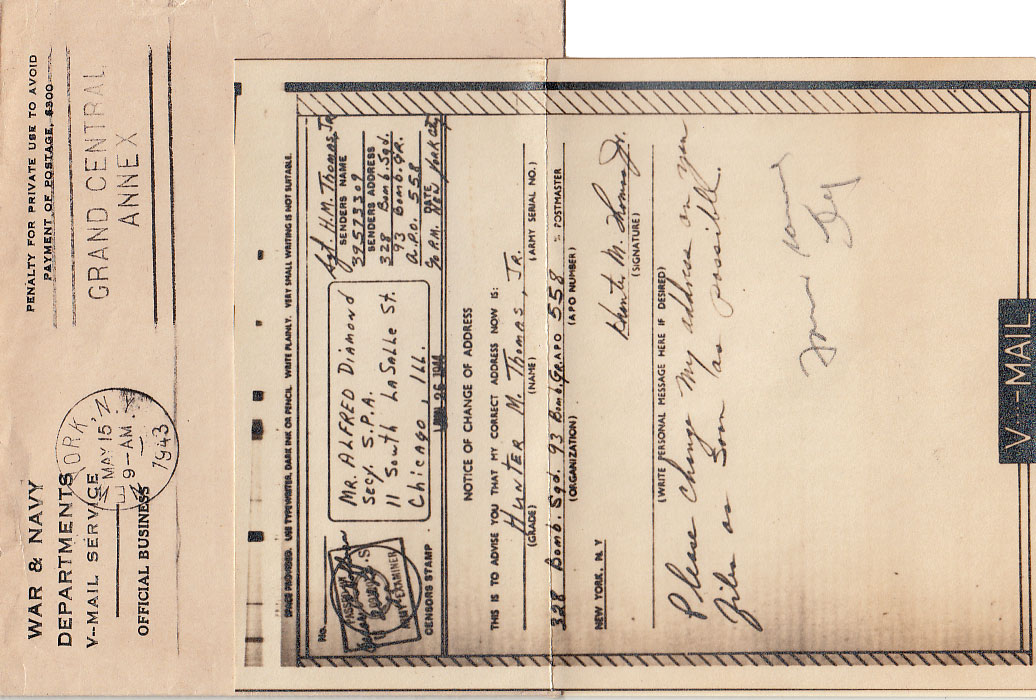 WAR & NAVY
DEPARTMENTS
V--MAIL SERVICE
OFFICIAL BUSINESS
MAY 15
9-AM
1943
GRAND CENTRAL
ANNEX
PENALTY FOR PRIVATE USE TO AVOID
PAYMENT OF POSTAGE, $300
SPACE PROVIDED. USE TYPEWRITER, DARK INK OR PENCIL. WRITE PLAINLY. VERY SMALL WRITING IS NOT SUITABLE.
No.
EXAMINER
CENSORS STAMP
MR. ALFRED DIAMOND
SECY. S.P.A.
11 South LaSalle St.
Chicago, Ill.
Sgt. H.M. Thomas, Jr.
SENDERS NAME
39573309
SENDERS ADDRESS
328 Bomb. Sqd.
93 Bomb. GR.
A.P.O. 558
DATE
c/o P.M. New York City
NOTICE OF CHANGE OF ADDRESS
THIS IS TO ADVISE YOU THAT MY CORRECT ADDRESS NOW IS:
HUNTER M. THOMAS, JR.
(GRADE) (NAME) (ARMY SERIAL NO.)
328 Bomb. Sqd. 93 Bomb. Gr. APO 558 % POSTMASTER
(ORGANIZATION) (APO NUMBER)
NEW YORK, N Y
Hunter M. Thomas Jr.
(SIGNATURE)
(WRITE PERSONAL MESSAGE HERE IF DESIRED)
Please change my address on your
files as soon as possible.
V--MAIL